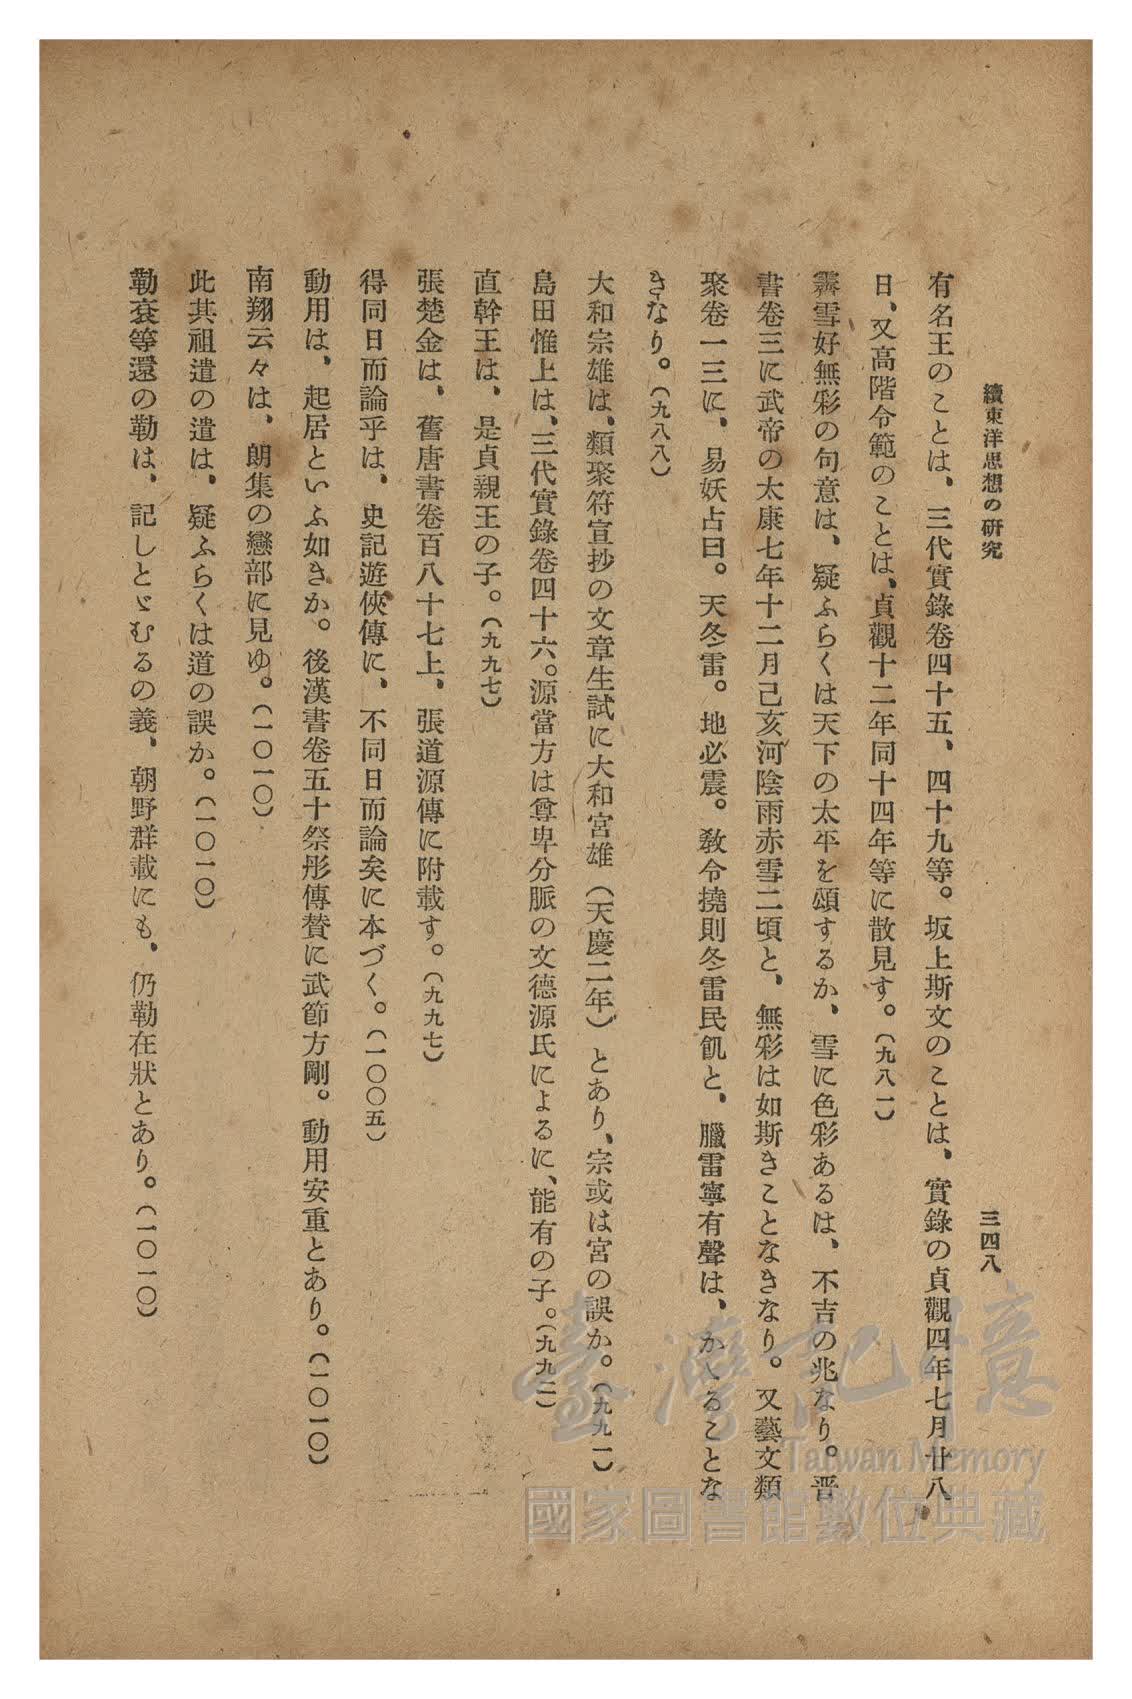 續東洋思想の硏究
三四八
有名王のことは、三代實錄卷四十五、四十九等。坂上斯文のことは、實錄の貞觀四年七月廿八
日、又高階令範のことは、貞觀十二年同十四年等に散見す。(九八一)
霽雪好無彩の句意は、疑ふらくは天下の太平を頌するか、雪に色彩あるは、不吉の兆なり。晋
書卷三に武帝の太康七年十二月己亥河陰雨赤雪二頃と、無彩は如斯きことなきなり。又藝文類
聚卷一三に、易妖占曰。天冬雷。地必震。敎令撓則冬雷民飢と、臘雷寧有聲は、かゝることな
きなり。(九八八)
大和宗雄は、類聚符宣抄の文章生試に大和宮雄(天慶二年)とあり、宗或は宮の誤か。(九九一)
島田惟上は、三代實錄卷四十六。源當方は尊卑分脈の文德源氏によるに、能有の子。(九九二)
直幹王は、是貞親王の子。(九九七)
張楚金は、舊唐書卷百八十七上、張道源傳に附載す。(九九七)
得同日而論乎は、史記遊俠傳に、不同日而論矣に本づく。(一〇〇五)
動用は、起居といふ如きか。後漢書卷五十祭彤傳賛に武節方剛。動用安重とあり。(一〇一〇)
南翔云々は、朗集の戀部に見ゆ。(一〇一〇)
此其祖遣の遣は、疑ふらくは道の誤か。(一〇一〇)
勒袞等還の勒は、記しとゞむるの義、朝野群載にも、仍勒在狀とあり。(一〇一〇)
臺灣記憶
Taiwan Memory
國家圖書館數位典藏